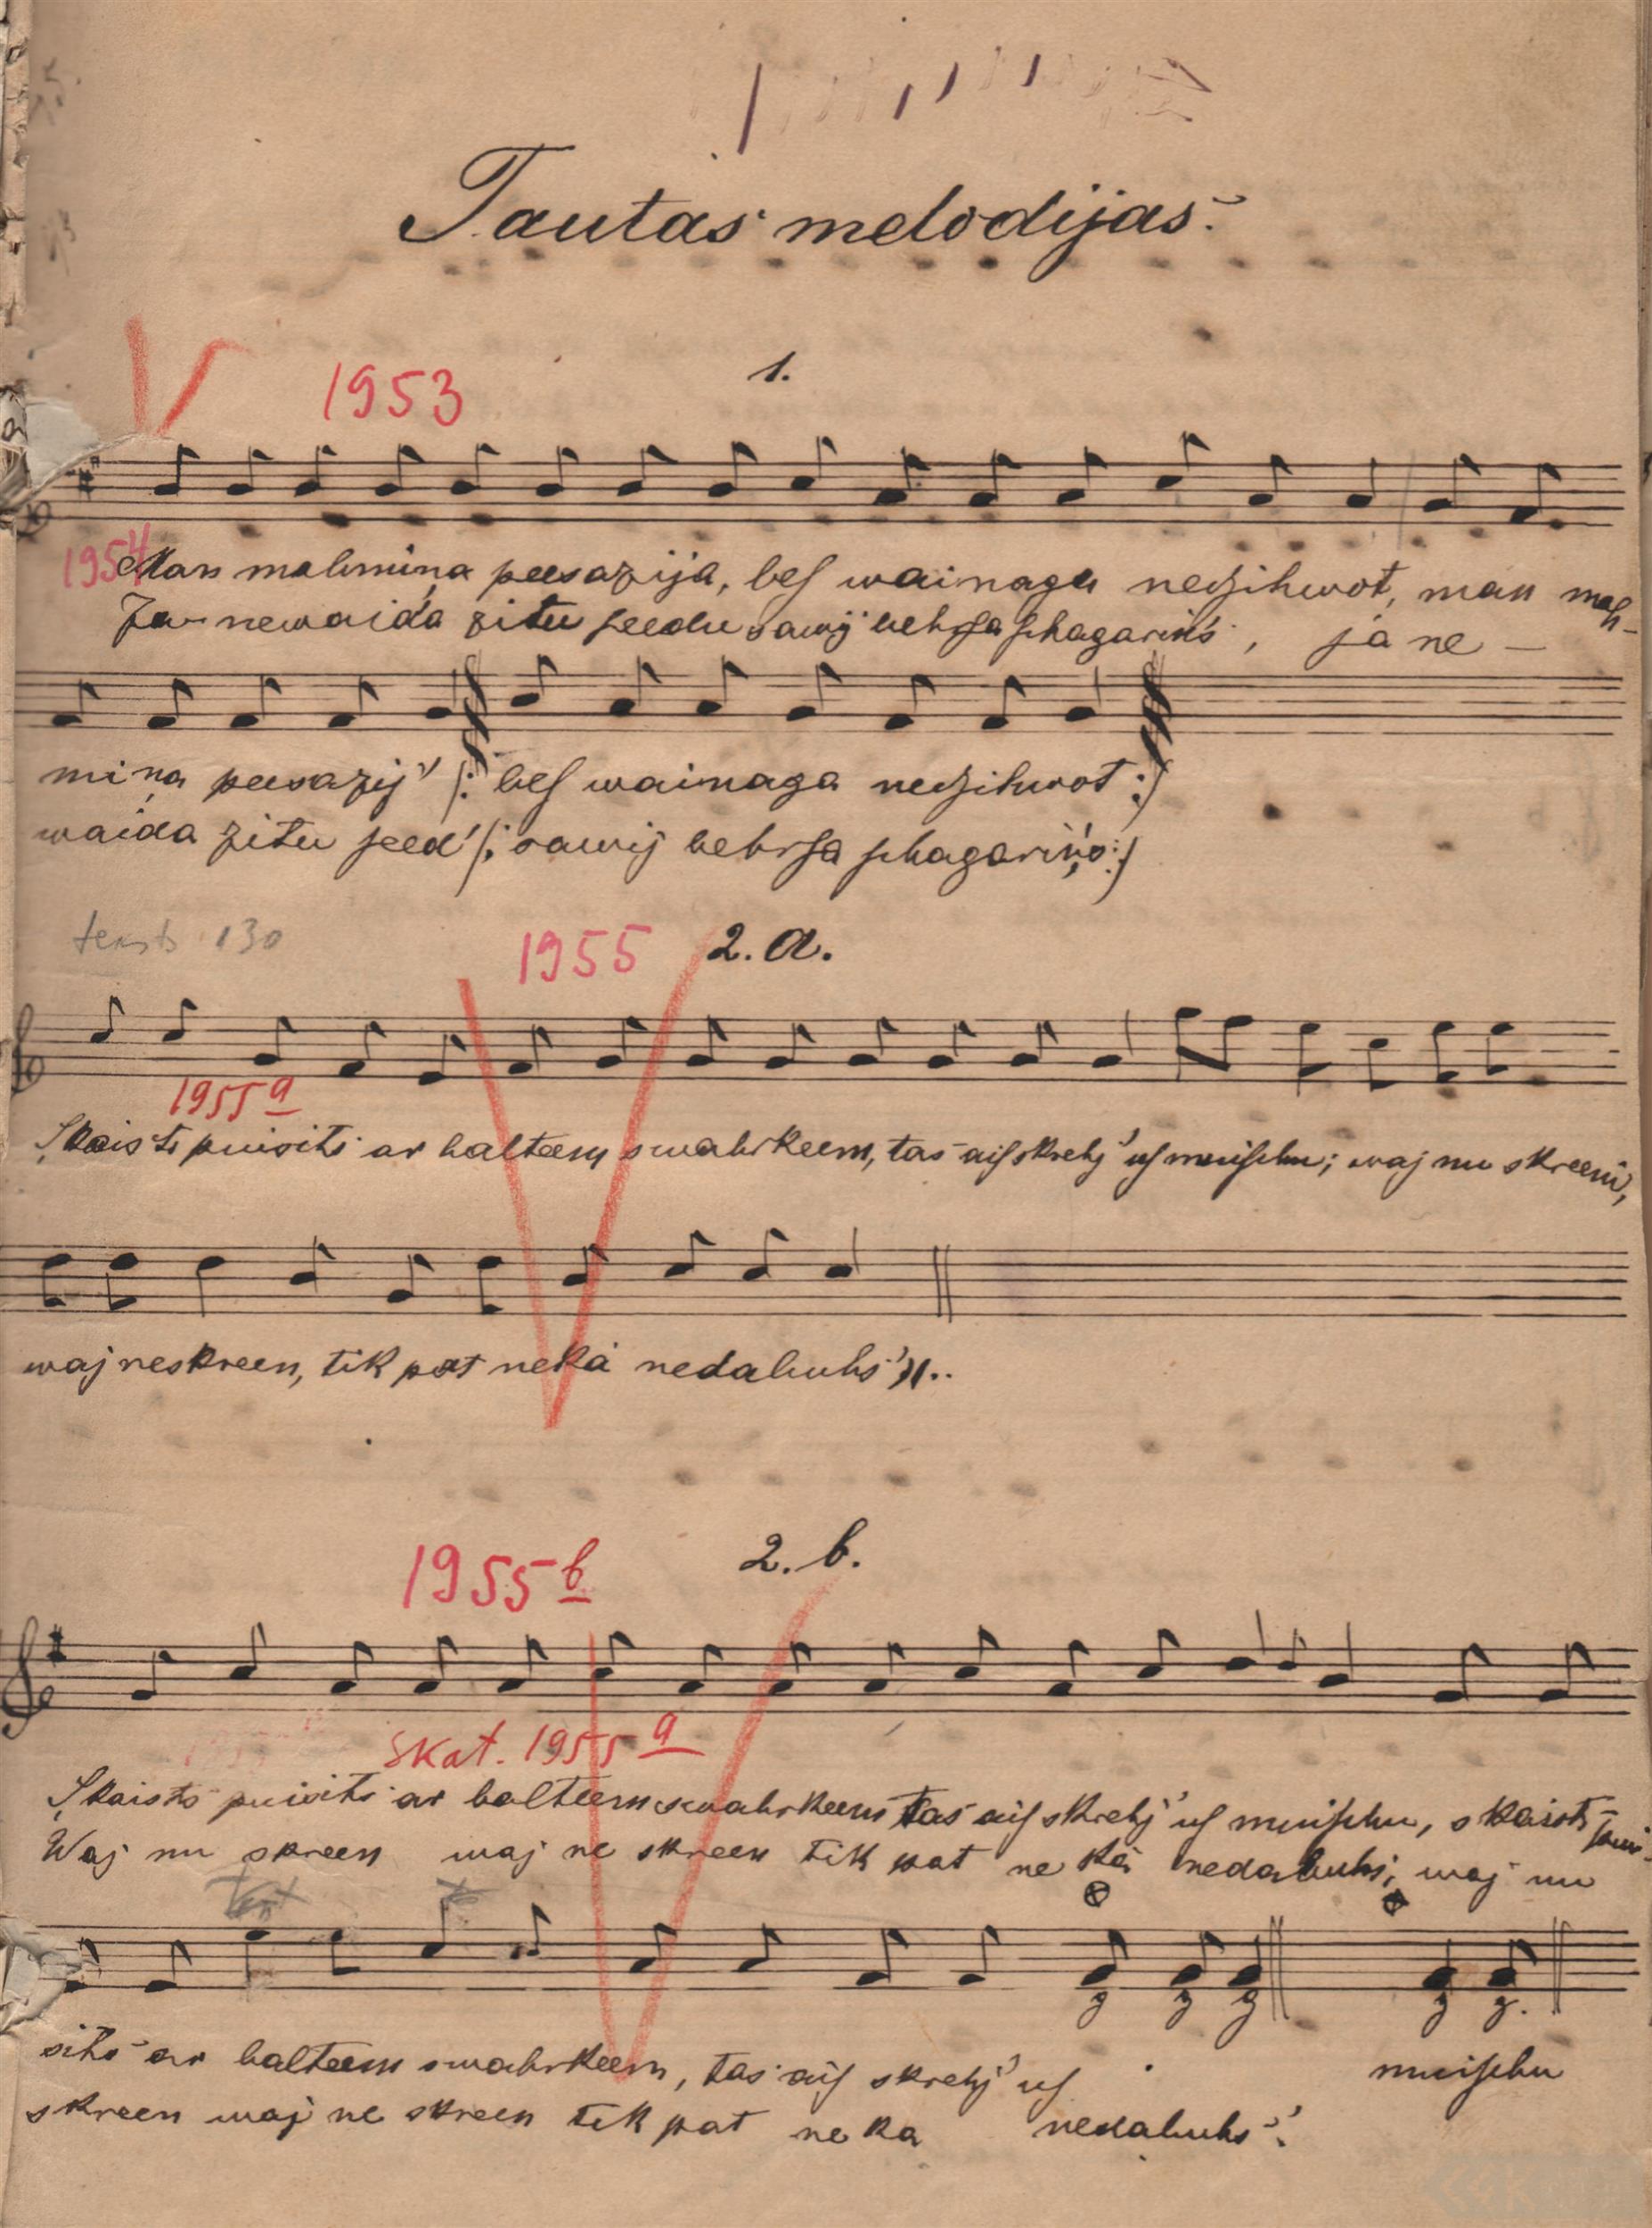 Tautas melodijas.
1953 1.
1954
Man mahmiņa peesazija, bes wainaga nedzihwot, man mah-
Ja newaida zitu seedu sawij behrsa schagariņ's, ja ne —
miņa peesazij' /: bes wainaga nedzihwot :/
waida zitu seed' /: sawij behrsa schagariņ's :/
teksts 130 1955 2. a.
1955 a
Skaists puisits ar balteem swahrkeem, tas aisskrehj' us muischu; waj nu skreen,
waj neskreen, tik pat nekā nedabuhs'..
1955 b 2. b.
Skat. 1955 a
Skaists puisits ar balteem swahrkeem tas ais skrehj' us muischu, skaists pui-
Waj nu skreen waj ne skreen tik pat ne kā nedabuhs; waj nu
g g g g g.
sits ar balteem swahrkeem, tas ais skrehj' us muischu
skreen waj ne skreen tik pat ne ka nedabuhs'.